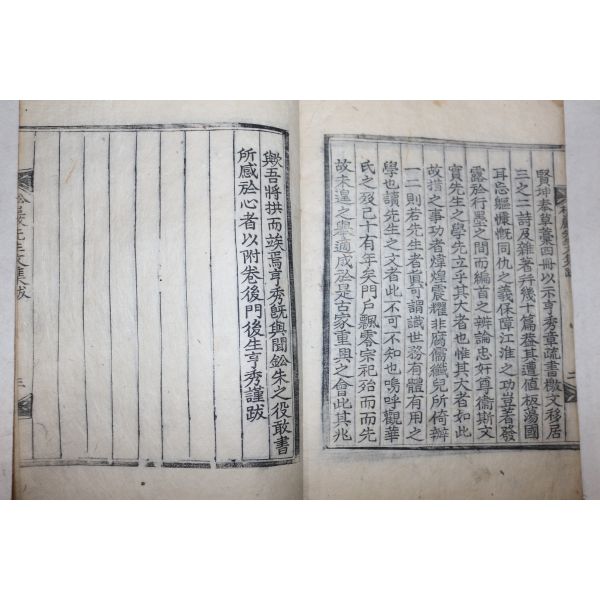 賢坤奉草藁四冊以示亨秀章疏書檄文移居
三之二詩及雜著幷幾十篇蓋其遭值板蕩國
耳忘軀慷慨同仇之義保障江淮之功豈著發
露於行墨之間而編首之辨論忠奸尊衛斯文
實先生之學先立乎其大者也惟其大者如此
故措之事功者煒煌震耀非腐儒纖兒所倚辦
一二則若先生者眞可謂識世務有體有用之
學也讀先生之文者此不可不知也嗚呼觀華
氏之歿已十有年矣門戶飄零宗祀殆而而先
故未遑之擧適成於是古家重興之會此其兆
二
歟吾將拱而竢焉亨秀旣與聞鈆朱之役敢書
所感於心者以附卷後門後生亨秀謹跋
先生文集跋
三